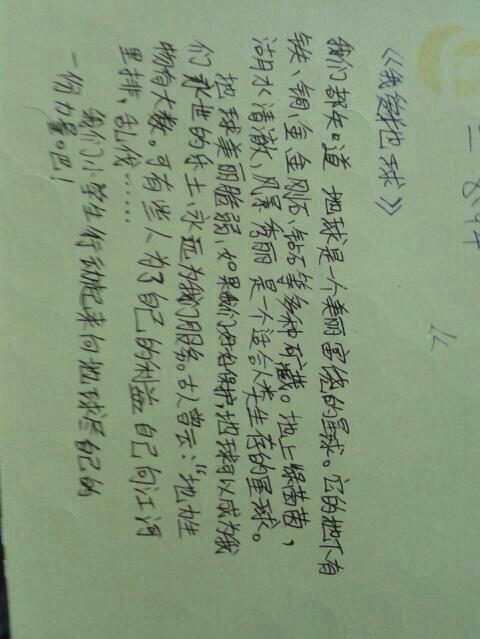 《我爱地球》
我们都知道 地球是一个美丽富饶的星球。它的地下有
铁、铜、金、金刚石、钻石等多种矿藏。地上绿茵茵，
湖水清澈、风景秀丽 是一个适合人类生存的星球。
地球美丽脆弱、如果我们好好保护，地球可以成为我
们永世的乐土、永远为我们服务。古人曾云："地生
物有大数。可有些人为了自己的利益 自己向江河
里排、乱伐……
我们小学生行动起来向地球尽自己的
一份力量吧！